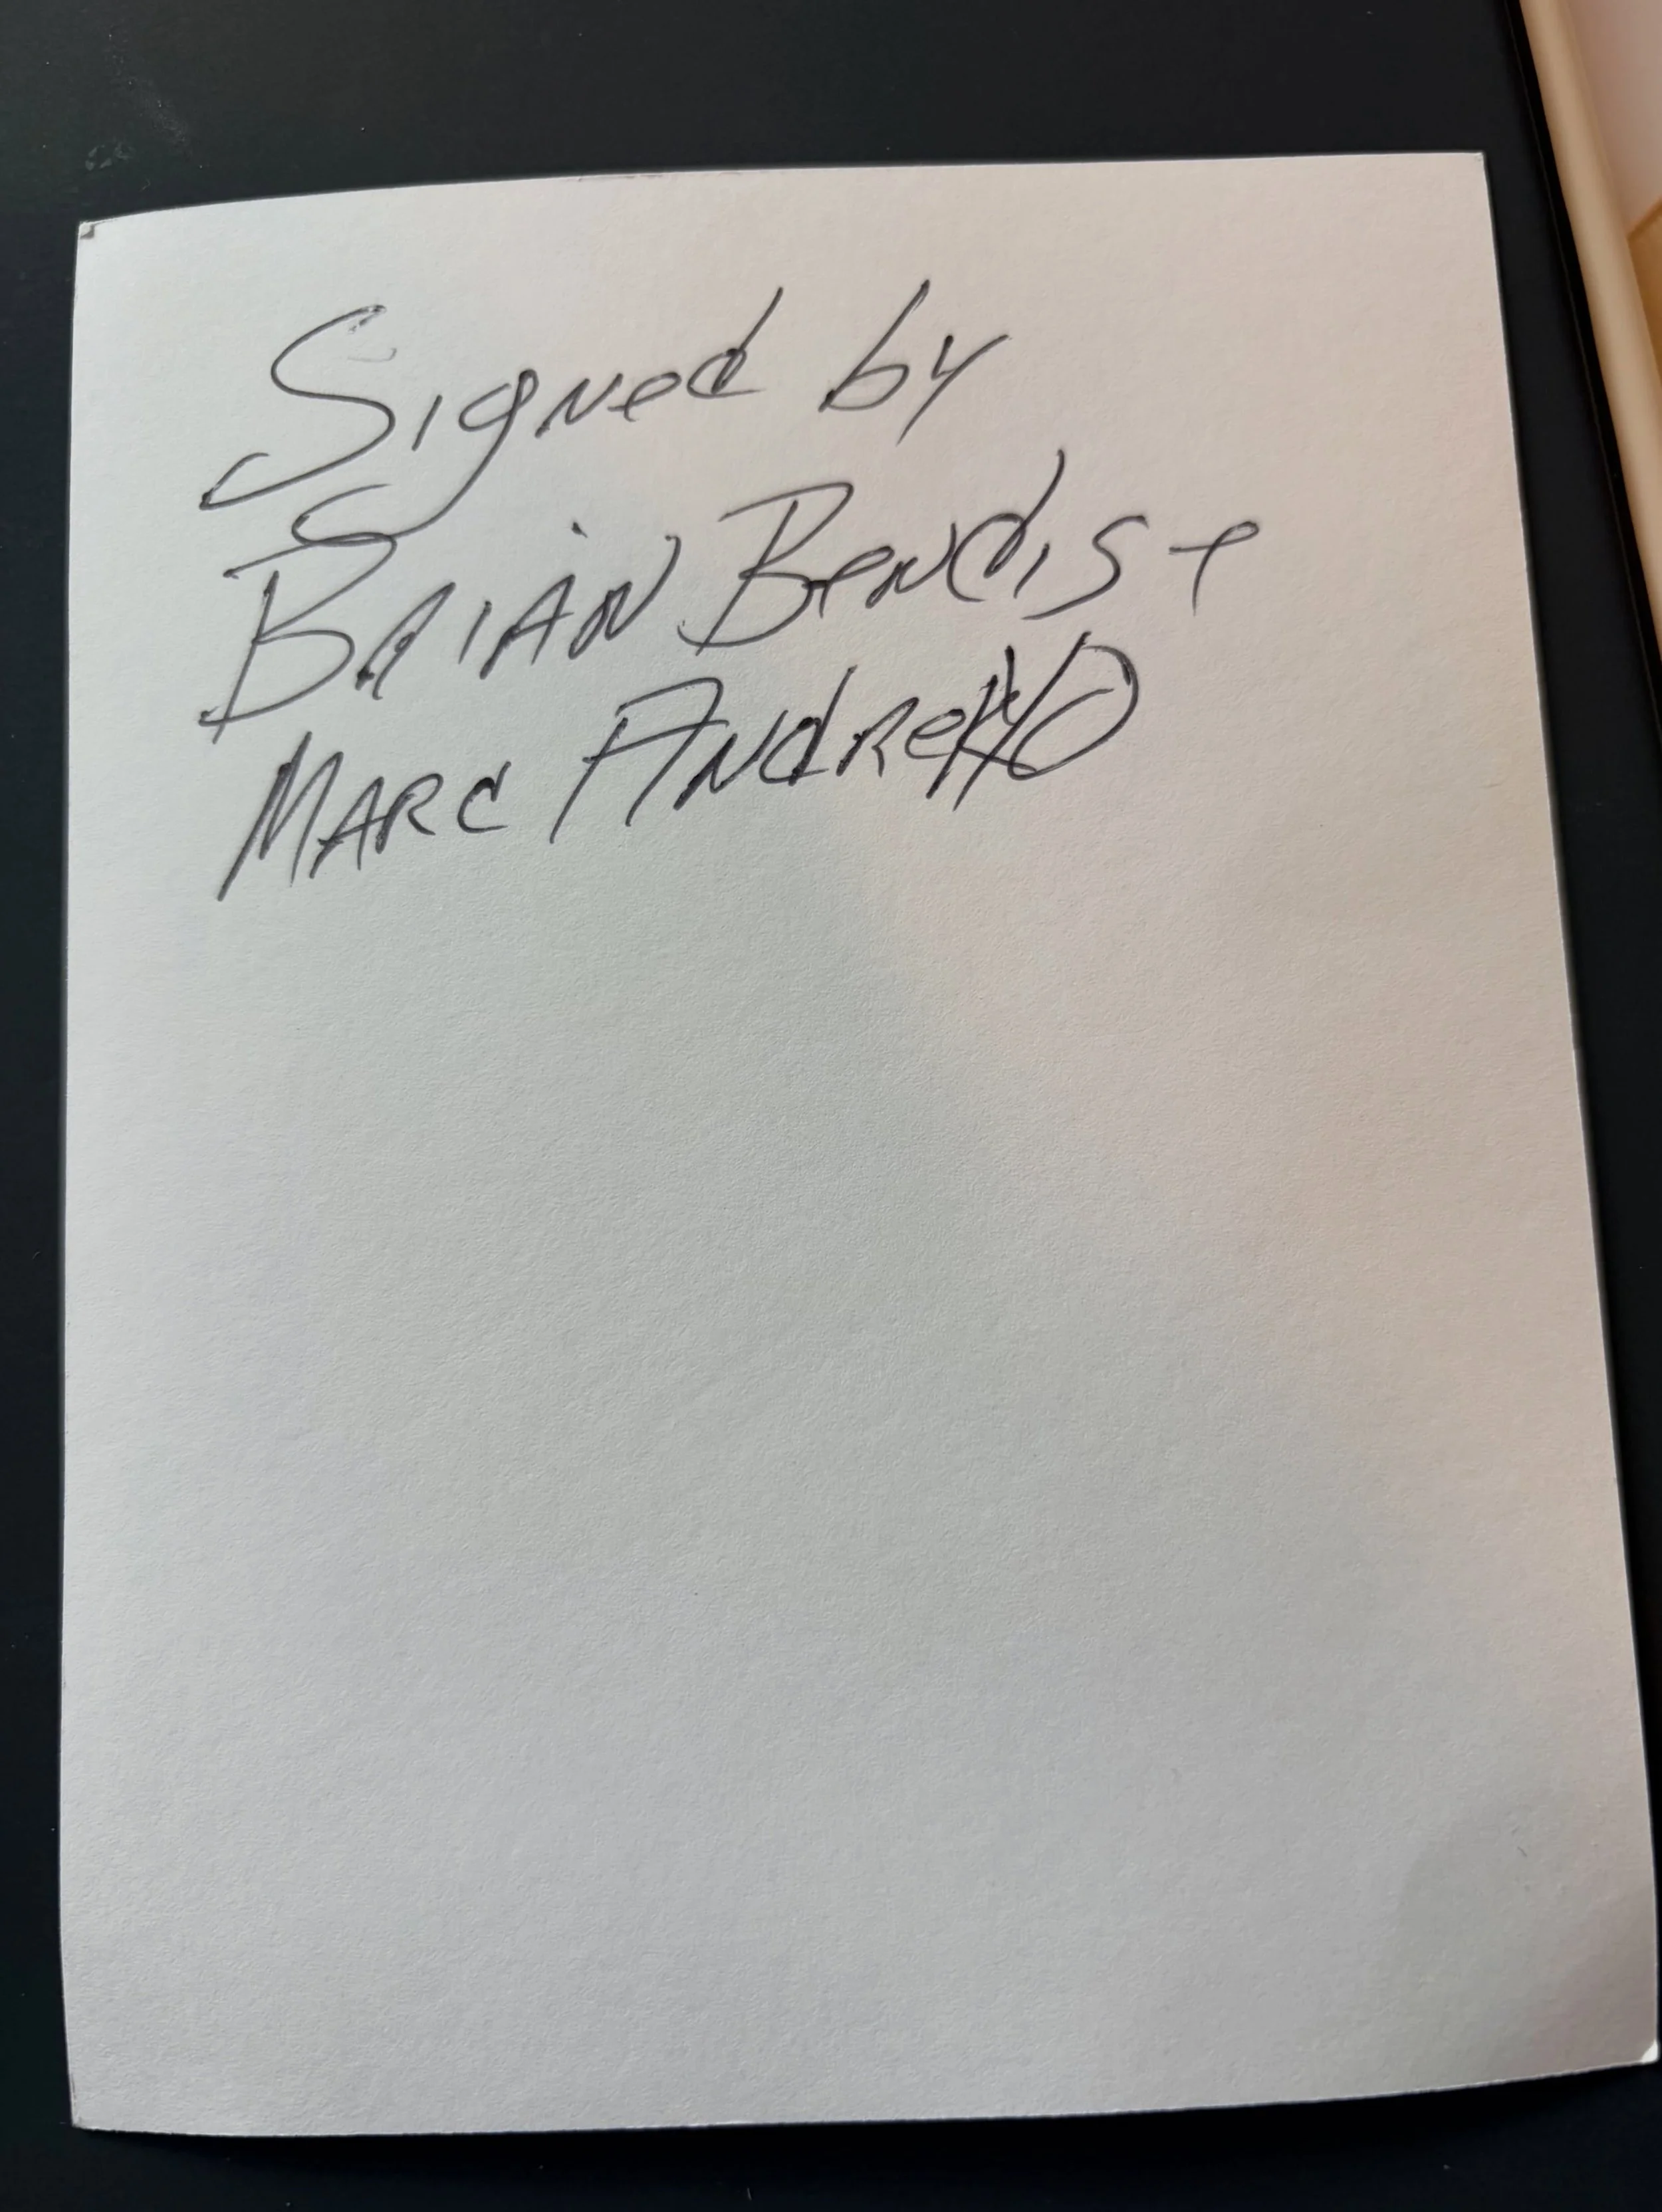 Signed by
BRIAN Bendis +
MARC ANdReYKO